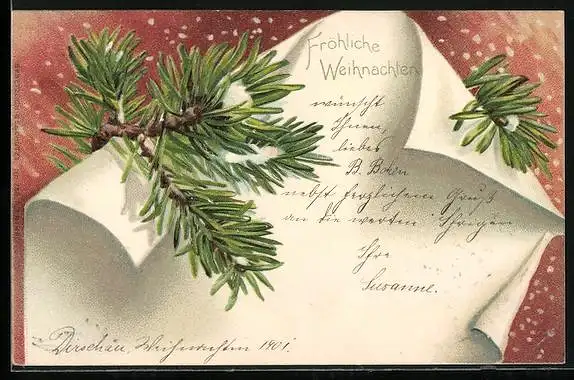 Fröhliche
Weihnachten
wünscht
Ihnen,
liebes
B.
nebst herzlichem Gruß
an die werten Ihrigen
Ihre
Susanne.
Dirschau, Weihnachten 1901.